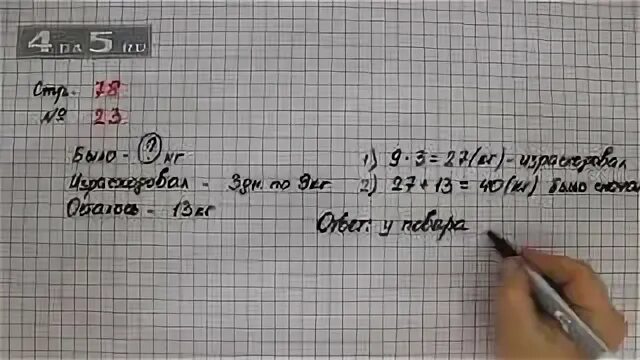 4 на 5 .ru
Стр. 78
№ 23
Было - ? кг
Израсходовал - 3 дн. по 9 кг
Осталось - 13 кг
1) 9 · 3 = 27 (кг) - израсходовал
2) 27 + 13 = 40 (кг) было
Ответ: у повара